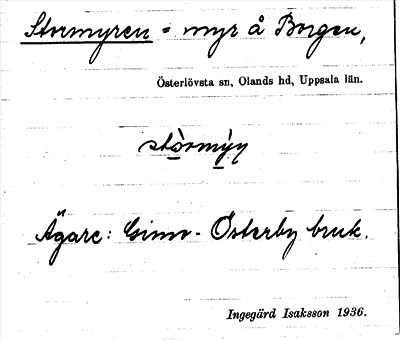 Stormyren = myr å Borgen,
Österlövsta sn, Olands hd, Uppsala län.
stòrmỳṇ
Ägare: Gimo-Österby bruk.
Ingegärd Isaksson 1936.